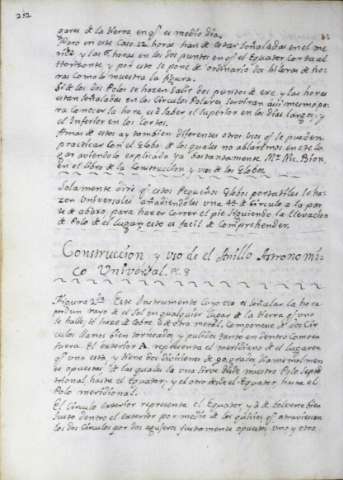 252
gares de la tierra en q.e es medio dia.
Pero en este caso 12 horas han de estar señaladas en el me
rid.o y las 6 horas en los dos puntos en q.e el Equator corta al
Horisonte y por esto se pone de ordinario dos hileras de ho
ras como lo muestra la figura.
Si de los dos Polos se hazen salir dos puntos de exe, y las horas
esten señaladas en los Circulos Polares serviran asi mesmo pa
ra conocer la hora, es à saber el superior en los dias largos, y
el Inferior en los cortos.
Amas de estos ay tambien diferentes otros usos q.e se pueden
practicar con el Globo, de los quales no ablaremos en este lu
gar aviendolo explicado ya bastantemente M.r N. Bion,
en el libro de la Construccion y uso de los Globos
Solamente dire q.e estos Pequeños Globos portatiles se ha
zen universales añadiendoles una 4.a de Circulo a la par
te de abaxo para hacer correr el pie siguiendo la elevacion
de Polo de el lugar, esto es facil de comprehender.
Construccion y uso de el Anillo Astronomi
co Universal. Pl. 8
Figura 2.a Este Instrumento cuyo uso es señalar la hora
por un rayo de el Sol en qualquier lugar de la tierra q.e uno
se halle, se haze de cobre ù de otro metal, componese de dos Cir
culos llanos bien torneados y pulidos tanto en dentro como en
fuera. El exterior A representa el meridiano de el lugar en
q.e uno está, y tiene dos divisiones de 90 grados diametralmen
te opuestas de las quales la una sirve desde nuestro Polo septen
trional, hasta el Equator, y el otro desde el Equator, hasta el
Polo meridional.
El Circulo interior representa el Equator, y à de bolverse bien
justo dentro el exterior por medio de los quicios q.e atraviessan
los dos Circulos por dos agujeros justamente opuestos uno y otro